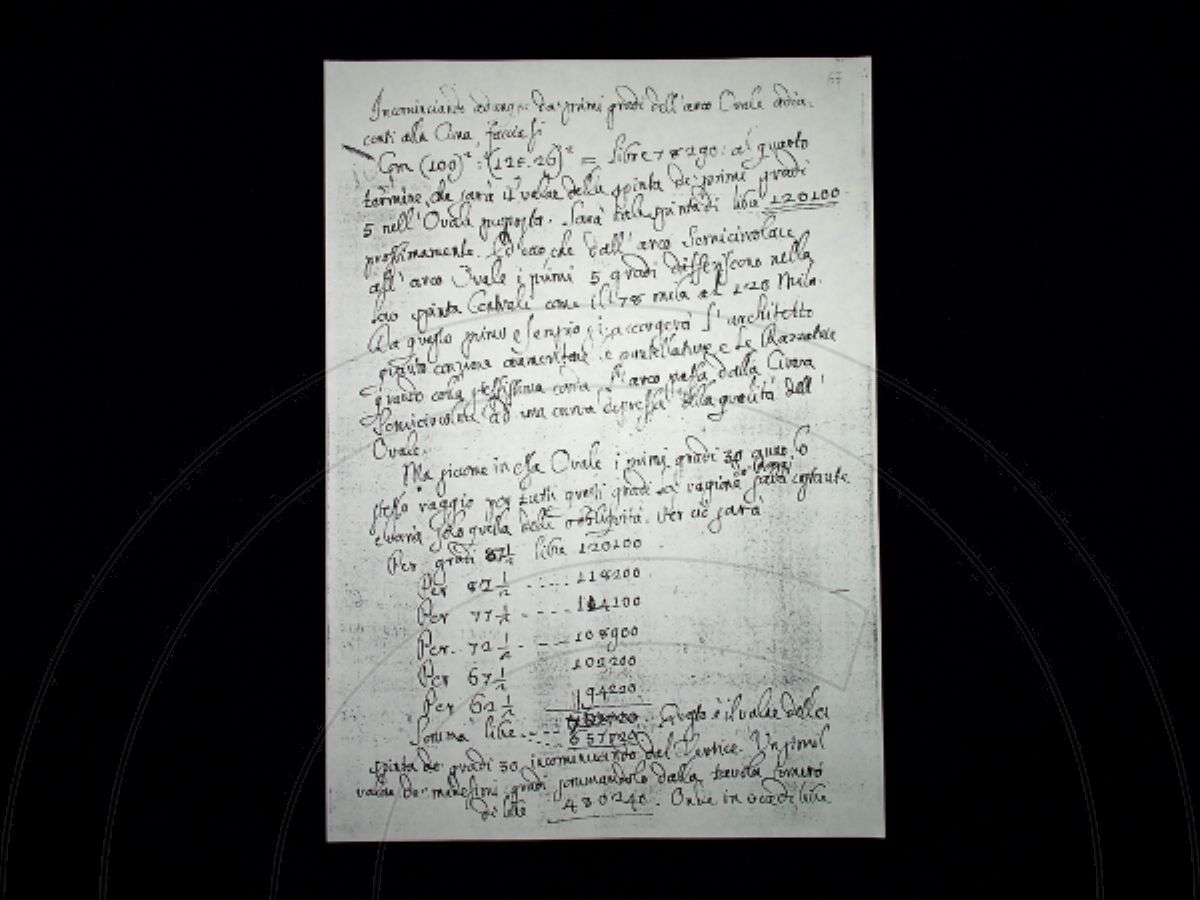 67
Incominciando adunque da primi gradi dell'arco Ovale adia-
centi alla Cima, facciasi
Com (100)² : (126.26)² = libre 78290: al quarto
termine, che sarà il valore della spinta de' primi gradi
5 nell'Ovale proposto. Sarà tale spinta di libre 120100
prossimamente. Ed ecco che dall'arco Semicircolare
all'arco Ovale i primi 5 gradi differiscono nella
loro spinta Centrale come il 78 mila al 120 Mila.
Da questo primo esempio si accorgerà l'architetto
quanto convenga aumentare le puntellature e le
quando colla stessissima corda l'arco passa dalla Curva
Semicircolare ad una curva depressa della qualità dell'
Ovale.
Ma siccome in essa Ovale i primi gradi 30 anno lo
stesso raggio per tutti questi gradi la ragione de' raggi sarà costante
e varia solo quella delle obliquità. Per ciò sarà
Per gradi 87½ libre 120100
Per 82½ ..... 118200
Per 77½ .... 114100
Per 72½ ..... 108900
Per 67½ 102200
Per 62½ 94220
Somma libre ..... 657720. Questo è il valore della
spinta de' gradi 30 incominciando dal Vertice. Un simil
valore de' medesimi gradi sommandolo dalla tavola
di libre 430240. Onde in vece di libre